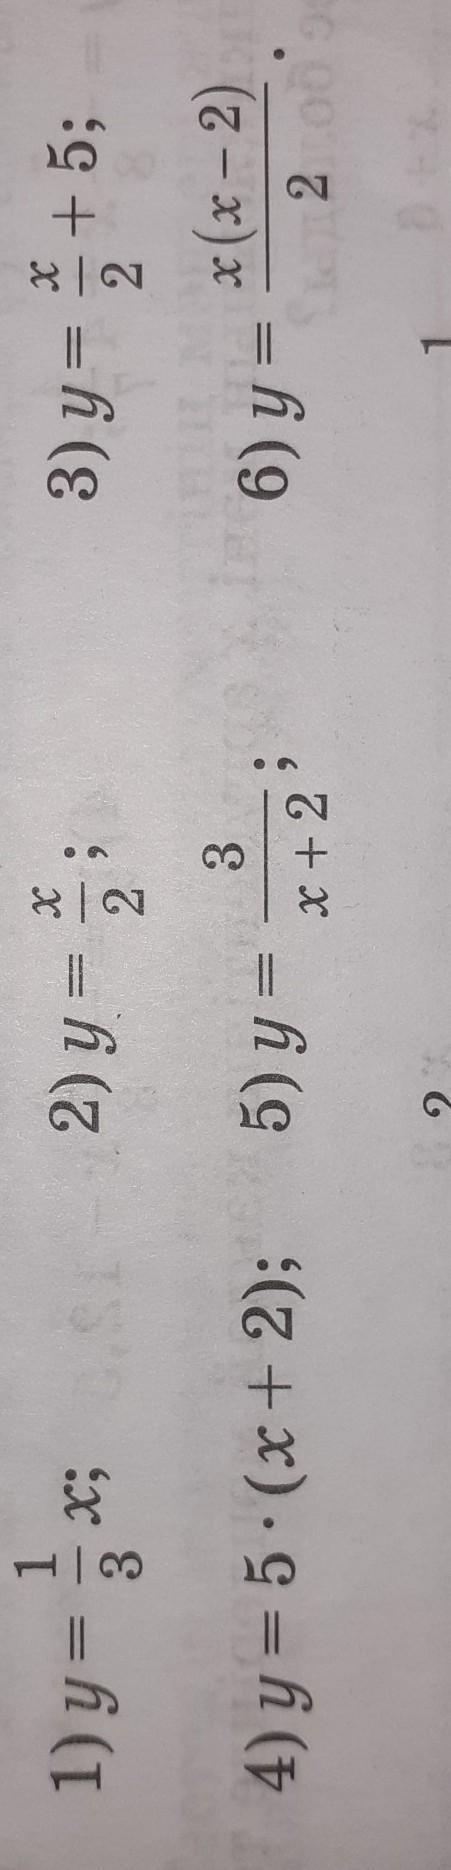 1) y = \frac{1}{3} x;   2) y = \frac{x}{2};   3) y = \frac{x}{2} + 5;
4) y = 5 · (x + 2);   5) y = \frac{3}{x + 2};   6) y = \frac{x(x − 2)}{2}.
2   1